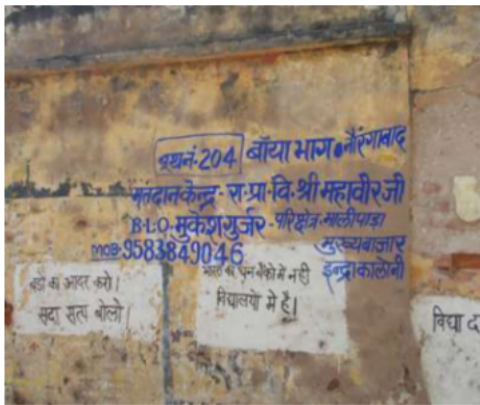 बूथ नं. 204 बाँया भाग नौरंगाबाद
मतदान केन्द्र - रा. प्रा. वि. श्री महावीर जी
B.L.O. मुकेश गुर्जर परिक्षेत्र - मालीपाड़ा
MOB 9583849046 मुख्य बाजार
इन्द्रा कालोनी
बड़ो का आदर करो।
सदा सत्य बोलो।
भारत का धन बैंको मे नही
विद्यालयो मे है।
विद्या द